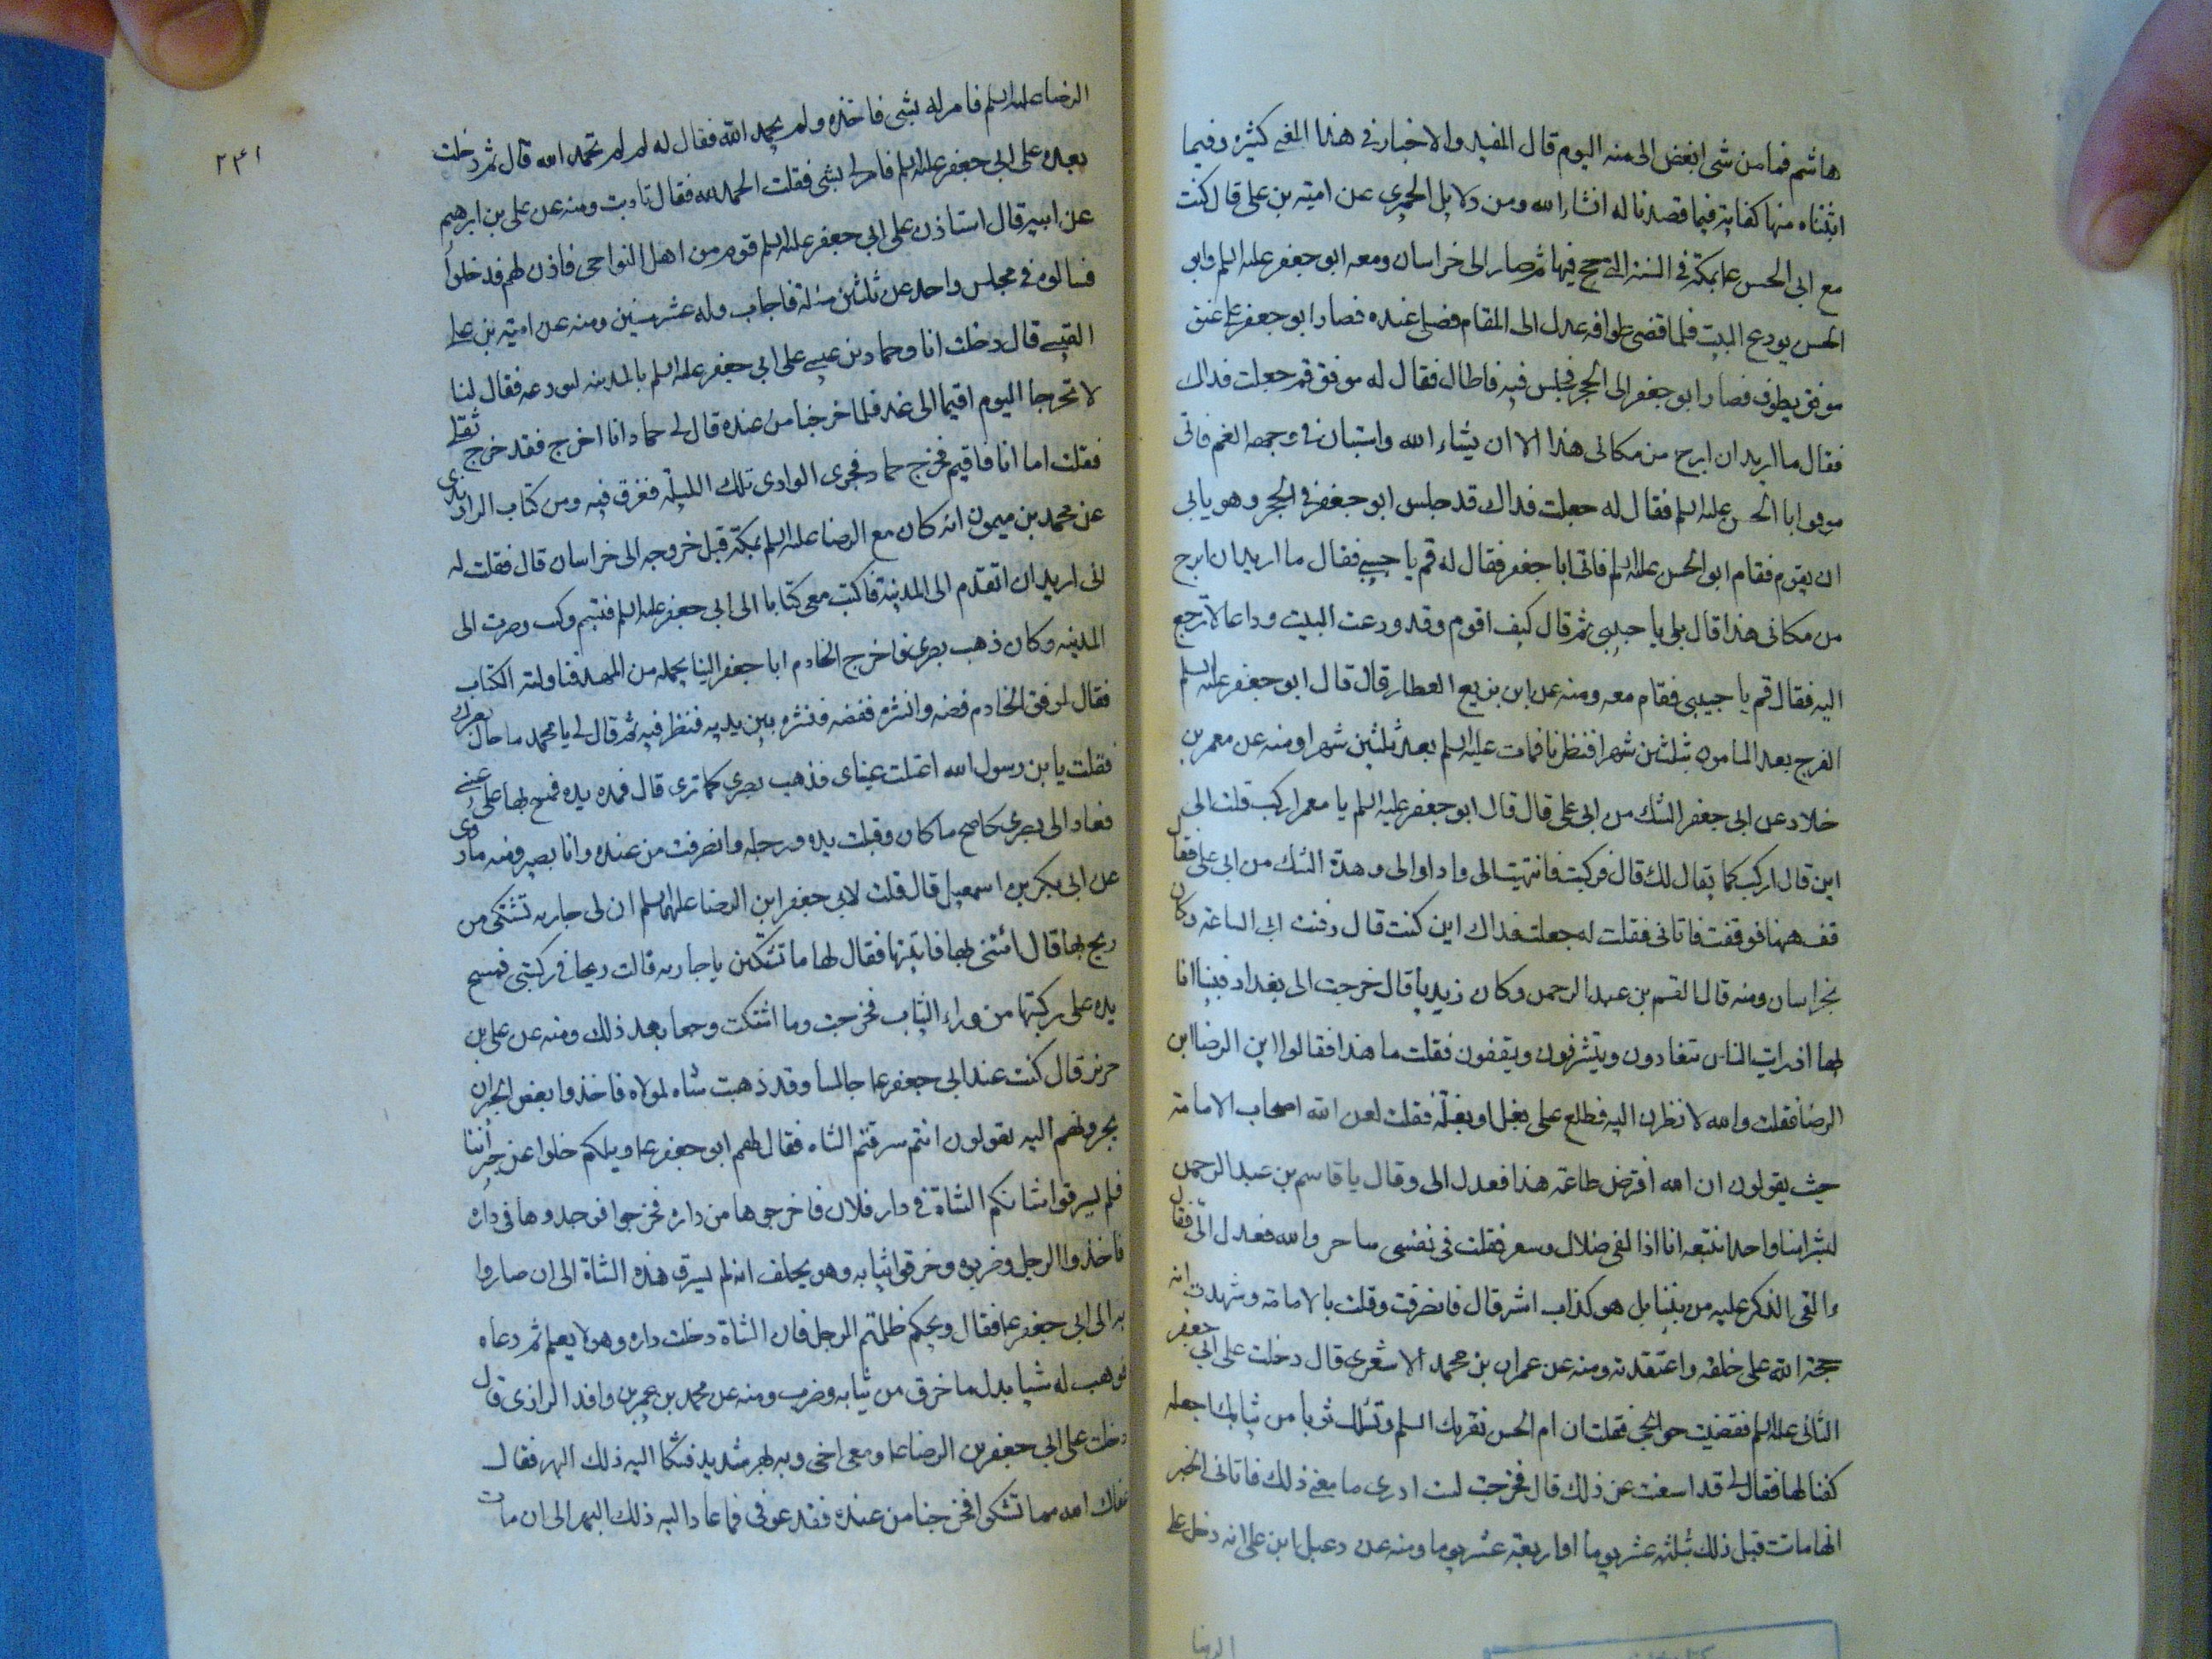 هاشم فما من شى ابغض الى منه اليوم قال المفيد والاخبار فى هذا المعنى كثيرة وفيما
اثبتناه منها كفاية فيما قصدنا له انشاء الله ومن دلايل الحميرى عن امية بن على قال كنت
مع ابى الحسن ع بمكة فى السنة التى حج فيها ثم صار الى خراسان ومعه ابو جعفر عليه السلم وابو
الحسن يودع البيت فلما قضى طوافه عدل الى المقام فصلى عنده فصار ابو جعفر على عنق
موفق يطوف فصار ابو جعفر الى الحجر فجلس فيه فاطال فقال له موفق قم جعلت فداك
فقال ما اريد ان ابرح من مكانى هذا الا ان يشاء الله واستبان فى وجهه الغم فاتى
موفق ابا الحسن عليه السلم فقال له جعلت فداك قد جلس ابو جعفر فى الحجر وهو يابى
ان يقوم فقام ابو الحسن عليه السلم فاتى ابا جعفر فقال له قم يا حبيبى فقال ما اريد ان ابرح
من مكانى هذا قال بلى يا حبيبى ثم قال كيف اقوم وقد ودعت البيت وداعا لا ترجع
اليه فقال قم يا حبيبى فقام معه ومنه عن ابن بزيع العطار قال قال ابو جعفر عليه السلم
الفرج بعد المامون بثلثين شهرا فنظرنا فمات عليه السلم بعد ثلثين شهرا ومنه عن معمر بن
خلاد عن ابى جعفر الشك من ابى على قال قال ابو جعفر عليه السلم يا معمر اركب قلت الى
اين قال اركب كما يقال لك قال فركبت فانتهيت الى واد او الى وهدة الشك من ابى على فقال
قف ههنا فوقفت فاتانى فقلت له جعلت فداك اين كنت قال دفنت ابى الساعة وكان
بخراسان ومنه قال القسم بن عبد الرحمن وكان زيديا قال خرجت الى بغداد فبينا انا
بها اذ رايت الناس يتعادون ويتشرفون ويقفون فقلت ما هذا فقالوا ابن الرضا ابن
الرضا فقلت والله لانظرن اليه فطلع على بغل او بغلة فقلت لعن الله اصحاب الامامة
حيث يقولون ان الله افترض طاعة هذا فعدل الى وقال يا قاسم بن عبد الرحمن
ابشرا منا واحدا نتبعه انا اذا لفى ضلال وسعر فقلت فى نفسى ساحر والله فعدل الى فقال
ءالقى الذكر عليه من بيننا بل هو كذاب اشر قال فانصرفت وقلت بالامامة وشهدت انه
حجة الله على خلقه واعتقدته ومنه عن عمران بن محمد الاشعرى قال دخلت على ابى جعفر
الثانى عليه السلم فقضيت حوائجى فقلت ان ام الحسن تقرئك السلم وتسألك ثوبا من ثيابك اجعله
كفنا لها فقال لى قد استغنت عن ذلك قال فخرجت لست ادرى ما معنى ذلك فاتانى الخبر
انها ماتت قبل ذلك بثلثه عشر يوما او اربعة عشر يوما ومنه عن دعبل ابن على انه دخل على
الرضا
٢٣١
الرضا عليه السلم فامر له بشى فاخذه ولم يحمد الله فقال له لم لم تحمد الله قال ثم دخلت
بعده على ابى جعفر عليه السلم فامر لى بشى فقلت الحمد لله فقال تادبت ومنه عن على بن ابرهيم
عن ابيه قال استاذن على ابى جعفر عليه السلم قوم من اهل النواحى فاذن لهم فدخلوا
فسالوه فى مجلس واحد عن ثلثين مسئلة فاجاب وله عشر سنين ومنه عن امية بن على
القيسى قال دخلت انا وحماد بن عيسى على ابى جعفر عليه السلم بالمدينه لنودعه فقال لنا
لا تخرجا اليوم اقيما الى غد فلما خرجنا من عنده قال لى حماد انا اخرج فقد خرج ثقلى
فقلت اما انا فاقيم فخرج حماد فجرى الوادى تلك الليلة فغرق فيه ومن كتاب الراوندى
عن محمد بن ميمون انه كان مع الرضا عليه السلم بمكة قبل خروجه الى خراسان قال فقلت له
انى اريد ان اتقدم الى المدينة فاكتب معى كتابا الى ابى جعفر عليه السلم فتبسم وكتب وصرت الى
المدينه وكان ذهب بصرى فاخرج الخادم ابا جعفر الينا يحمله من المهد فناولته الكتاب
فقال لموفق الخادم فضه وانشره ففضه ونشره بين يديه فنظر فيه ثم قال لى يا محمد ما حال بصرك
فقلت يا بن رسول الله اعتلت عيناى فذهب بصرى كما ترى قال فمد يده فمسح بها على عينى
فعاد الى بصرى كاصح ما كان وقبلت يده ورجله وانصرفت من عنده وانا بصير ومنه ما روى
عن ابى بكر بن اسمعيل قال قلت لابى جعفر ابن الرضا عليهما السلم ان لى جاريه تشتكى من
ريح بها قال ائتنى بها فاتيتها فقال لها ما تشتكين يا جاريه قالت ريحا فى ركبتى فمسح
يده على ركبتها من وراء الثياب فخرجت وما اشتكت وجعا بعد ذلك ومنه عن على بن
جرير قال كنت عند ابى جعفر ع جالسا وقد ذهبت شاه لمولاه فاخذوا بعض الجيران
يجرونهم اليه يقولون انتم سرقتم الشاه فقال لهم ابو جعفر ع ويلكم خلوا عن جيراننا
فلم يسرقوا شاتكم الشاة فى دار فلان فاخرجوها من داره فخرجوا فوجدوها فى داره
فاخذوا الرجل وضربوه وخرقوا ثيابه وهو يحلف انه لم يسرق هذه الشاة الى ان صاروا
به الى ابى جعفر ع فقال ويحكم ظلمتم الرجل فان الشاة دخلت داره وهو لا يعلم ثم دعاه
فوهب له شيا بدل ما خرق من ثيابه وضرب ومنه عن محمد بن عمير بن واقد الرازى قال
دخلت على ابى جعفر بن الرضا ع ومعى اخى وبه بهر شديد فشكا اليه ذلك البهر فقال
عافاك الله مما تشكو فخرجنا من عنده فقد عوفى فما عاد اليه ذلك البهر الى ان مات